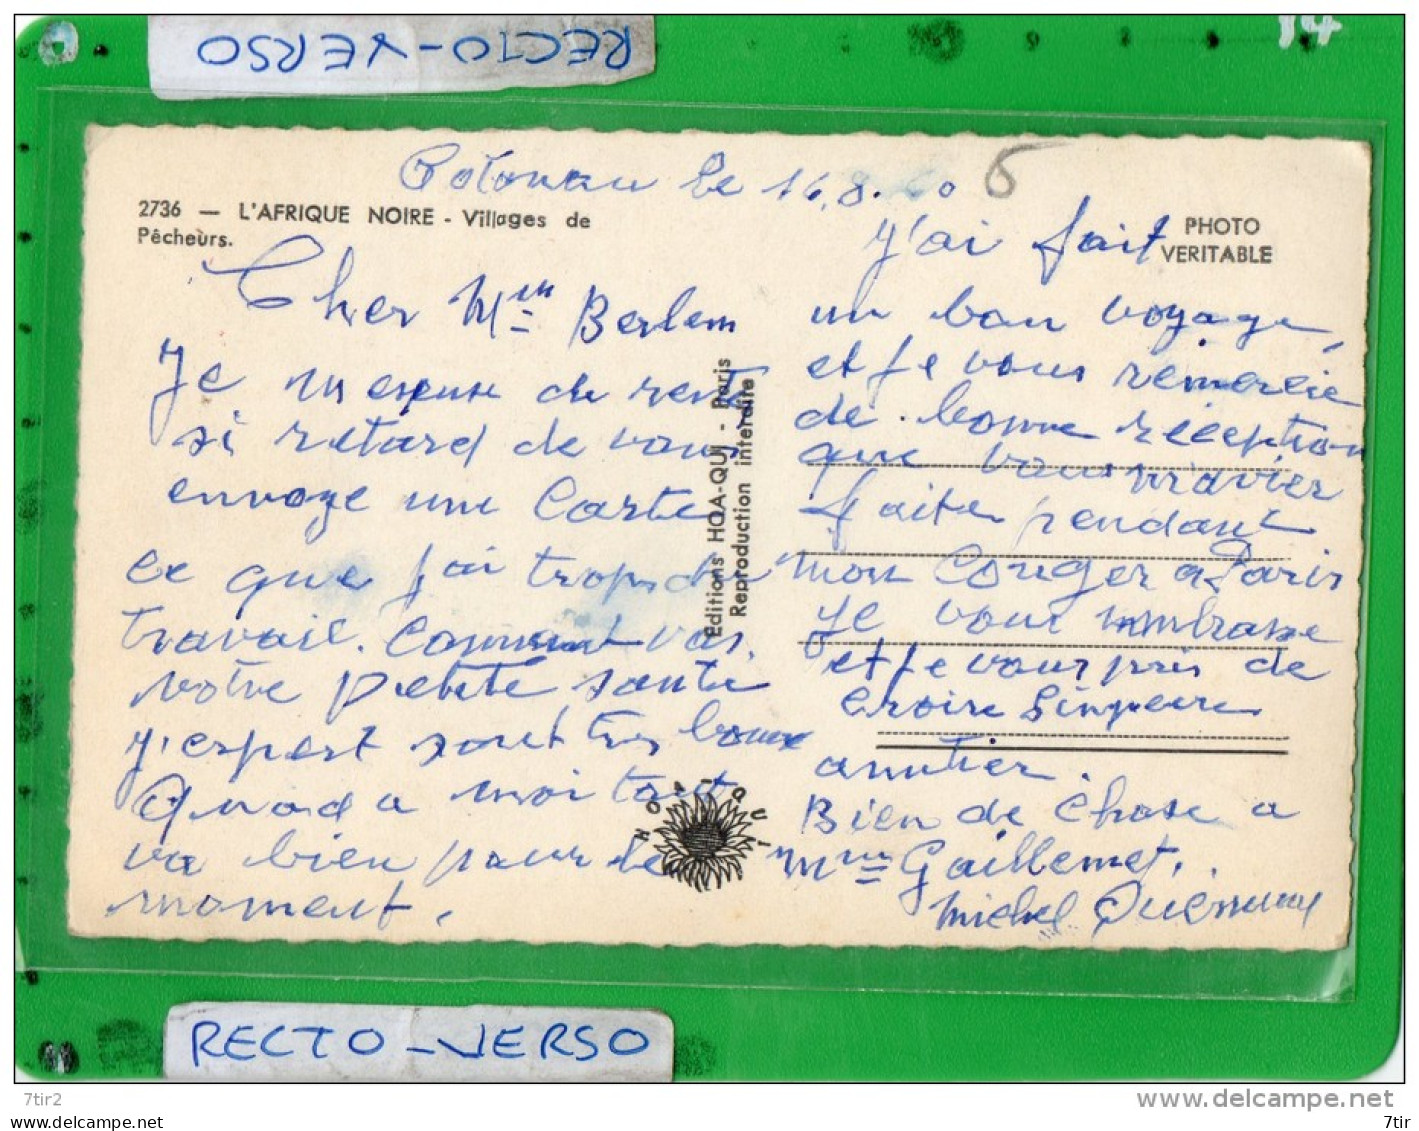 RECTO-VERSO
14
le 16.8. 60
6
2736 — L'AFRIQUE NOIRE - Villages de
Pêcheurs.
PHOTO
VERITABLE
Cher Mme Berlem
Je de
si retard de vous
envoye une Carte
ce que j'ai trop de
travail. Comment vas
votre petite santé
j'espert sont tres bonne
Quand a moi tout
va bien pour le
moment.
Editions HOA-QUI - Paris
Reproduction interdite
HOA-QUI
J'ai fait
un bon voyage,
et je vous remercie
de bonne réception
que vous m'avier
faite pendant
mon Conger a Paris
Je vous embrasse
et je vous pris de
croire
amitier.
Bien de Chose a
Mme Gaillemet.
Michel
RECTO-VERSO
7tir2
delcampe.net
7tir